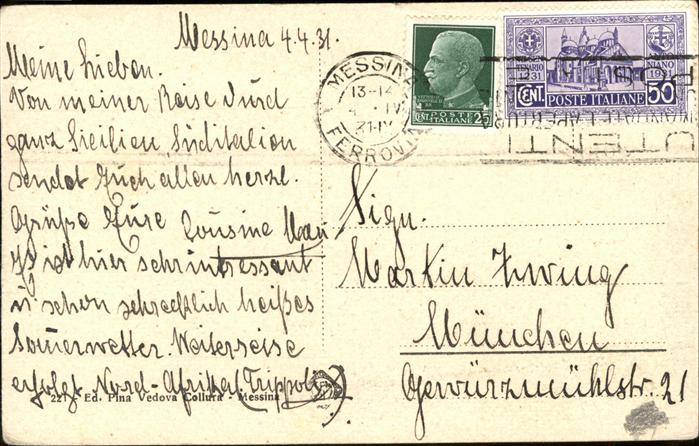 Messina 4.4.31.
Meine Lieben.
Von meiner Reise durch
ganz Sicilien Süditalien
sendet Euch allen herzl.
Grüße Eure Cousine
Es ist hier sehr intressant
u schon schrecklich heißes
Sommerwetter. Weiterreise
erfolgt Nord-Afrika (Tripolis)
221 Ed. Pina Vedova Collura - Messina
MESSINA
13-14
4 . IV
31-IX
FERROVIA
POSTE
ITALIANE
CENT. 25
CENTENARIO
1231
CENT. POSTE ITALIANE 50
Sign.
Martin Zwing
München
Gewürzmühlstr. 21